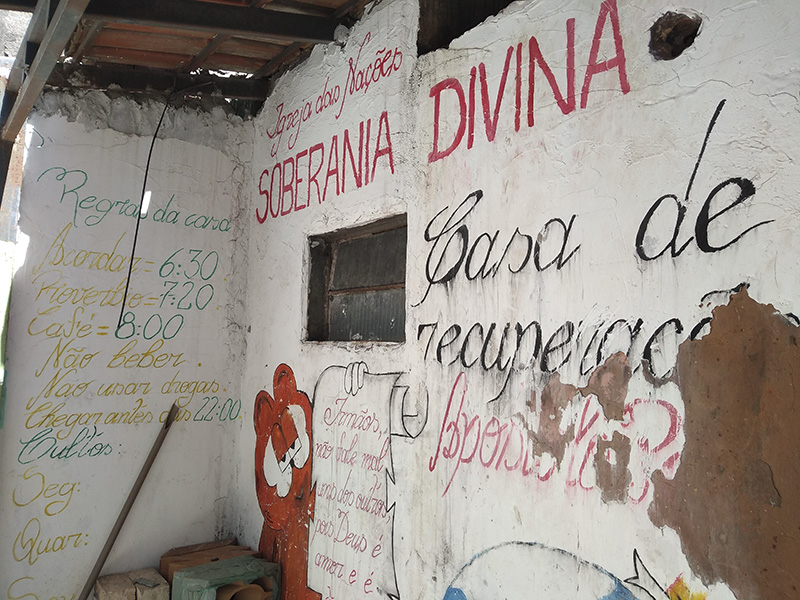 Regras da casa
Acordar = 6:30
Proverbio = 7:20
Café = 8:00
Não beber.
Não usar drogas.
Chegar antes das 22:00
Cultos:
Seg:
Quar:
Igreja das Nações
SOBERANIA DIVINA
Casa de
recuperação
Irmãos,
não fale mal
uns dos outros,
pois Deus é
amor e é